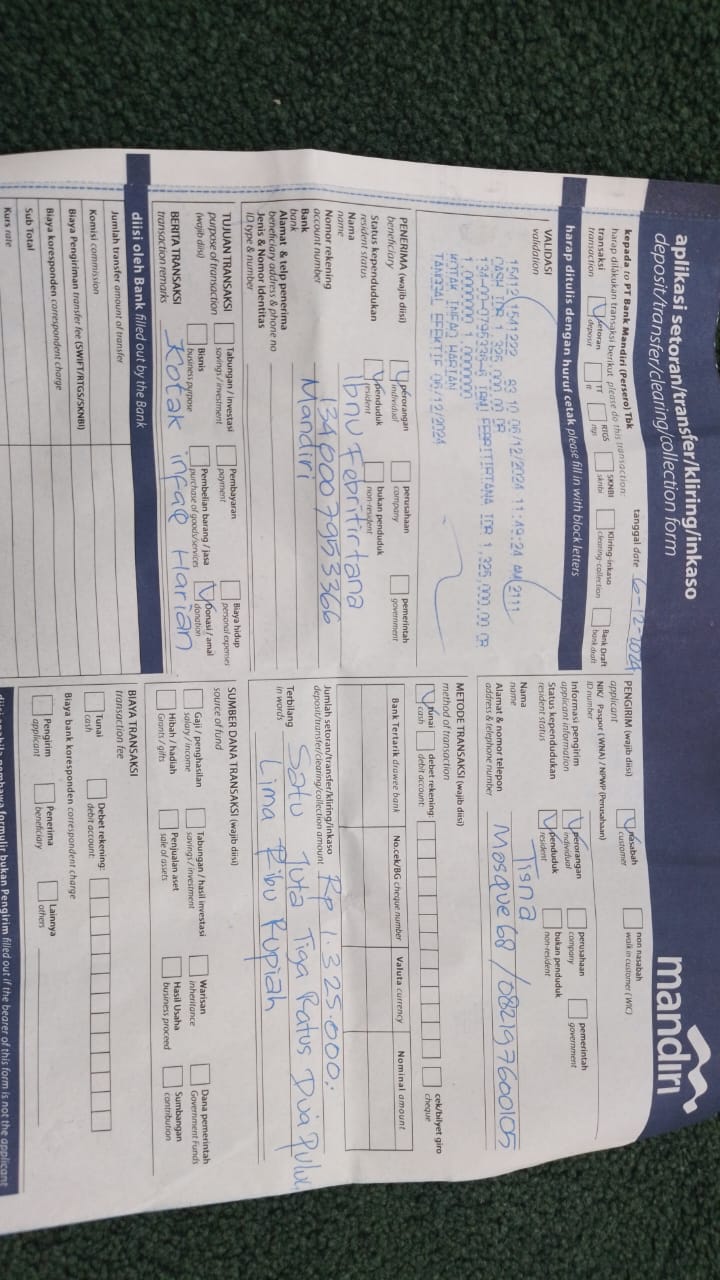 aplikasi setoran/transfer/kliring/inkaso
deposit/transfer/clearing/collection form
mandiri
kepada to PT Bank Mandiri (Persero) Tbk
tanggal date 6-12-2024
harap dilakukan transaksi berikut please do this transaction:
transaksi
transaction
setoran
deposit
TT
tt
RTGS
rtgs
SKNBI
sknbi
Kliring-inkaso
clearing-collection
Bank Draft
bank draft
harap ditulis dengan huruf cetak please fill in with block letters
VALIDASI
validation
CASH IDR 1,325,000.00 CR
IDR 1,325,000.00 CR
1.0000000 1.0000000
KOTAK INFAQ HARIAN
TANGGAL EFEKTIF 06/12/2024
PENERIMA (wajib diisi)
beneficiary
perorangan
individual
perusahaan
company
pemerintah
government
Status kependudukan
resident status
penduduk
resident
bukan penduduk
non-resident
Nama
name
Ibnu Febritirtana
Nomor rekening
account number
1340007953366
Bank
bank
Mandiri
Alamat & telp penerima
beneficiary address & phone no
Jenis & Nomor Identitas
ID type & number
TUJUAN TRANSAKSI
purpose of transaction
(wajib diisi)
Tabungan / investasi
savings / investment
Pembayaran
payment
Biaya hidup
personal expenses
Bisnis
business purpose
Pembelian barang / jasa
purchase of goods/services
Donasi / amal
donation
BERITA TRANSAKSI
transaction remarks
Kotak infaq Harian
diisi oleh Bank filled out by the Bank
Jumlah transfer amount of transfer
Komisi commission
Biaya Pengiriman transfer fee (SWIFT/RTGS/SKNBI)
Biaya koresponden correspondent charge
Sub Total
Kurs rate
PENGIRIM (wajib diisi)
applicant
nasabah
customer
non nasabah
walk in customer (WIC)
NIK/ Paspor (WNA) / NPWP (Perusahaan)
ID number
Informasi pengirim
applicant information
perorangan
individual
perusahaan
company
pemerintah
government
Status kependudukan
resident status
penduduk
resident
bukan penduduk
non-resident
Nama
name
Tisna
Alamat & nomor telepon
address & telephone number
Mosque 68 / 082197600105
METODE TRANSAKSI (wajib diisi)
method of transaction
tunai
cash
debet rekening:
debit account:
cek/bilyet giro
cheque
Bank Tertarik drawee bank
No.cek/BG cheque number
Valuta currency
Nominal amount
Jumlah setoran/transfer/kliring/inkaso
deposit/transfer/clearing/collection amount
Rp 1.325.000,-
Terbilang
in words
Satu Juta Tiga Ratus Dua Puluh
Lima Ribu Rupiah
SUMBER DANA TRANSAKSI (wajib diisi)
source of fund
Gaji / penghasilan
salary / income
Tabungan / hasil investasi
savings / investment
Warisan
inheritance
Dana pemerintah
Government Funds
Hibah / hadiah
Grants / gifts
Penjualan aset
sale of assets
Hasil Usaha
business proceed
Sumbangan
contribution
BIAYA TRANSAKSI
transaction fee
Tunai
cash
Debet rekening:
debit account:
Biaya bank koresponden correspondent charge
Pengirim
applicant
Penerima
beneficiary
Lainnya
others
diisi apabila pembawa formulir bukan Pengirim filled out if the bearer of this form is not the applicant